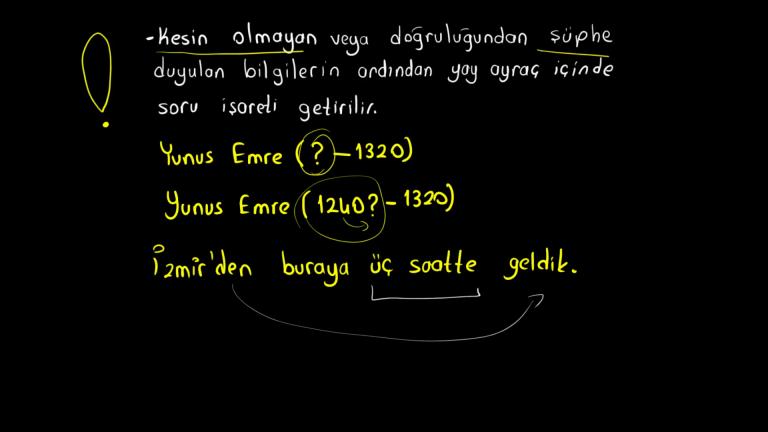 -Kesin olmayan veya doğruluğundan şüphe
duyulan bilgilerin ardından yay ayraç içinde
soru işareti getirilir.
Yunus Emre (?-1320)
Yunus Emre (1240?-1320)
İzmir'den buraya üç saatte geldik.